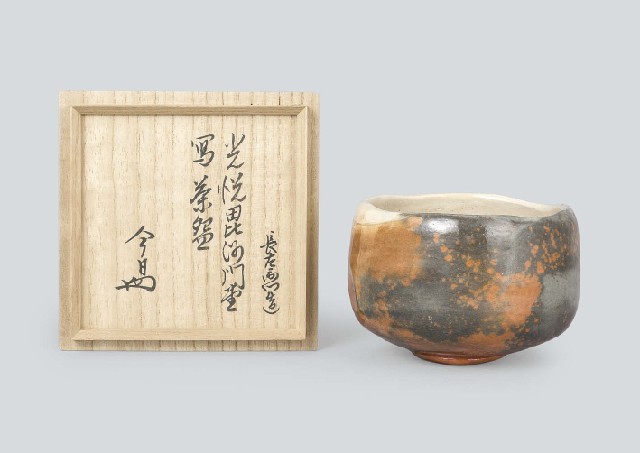 長左衛門造
光悦毘沙門堂
写茶盌
今日